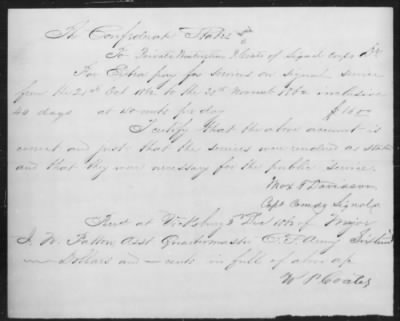 The Confederate States
To Private Washington P. Coates of Signal Corps Dr
For Extra pay for services on signal service
from the 21st Oct 1862 to the 30th November 1862 inclusive
40 days at 40 cents per day $16.00
I certify that the above account is
correct and just; that the services were rendered as stated
and that they were necessary for the public service.
Max T Davidson
Capt Comdg Signals
Recd at Vicksburg Dec 1862 of Major
J. W. Patton Asst Quartermaster C. S. Army Sixteen
Dollars and cents in full of above a/c
W P Coates